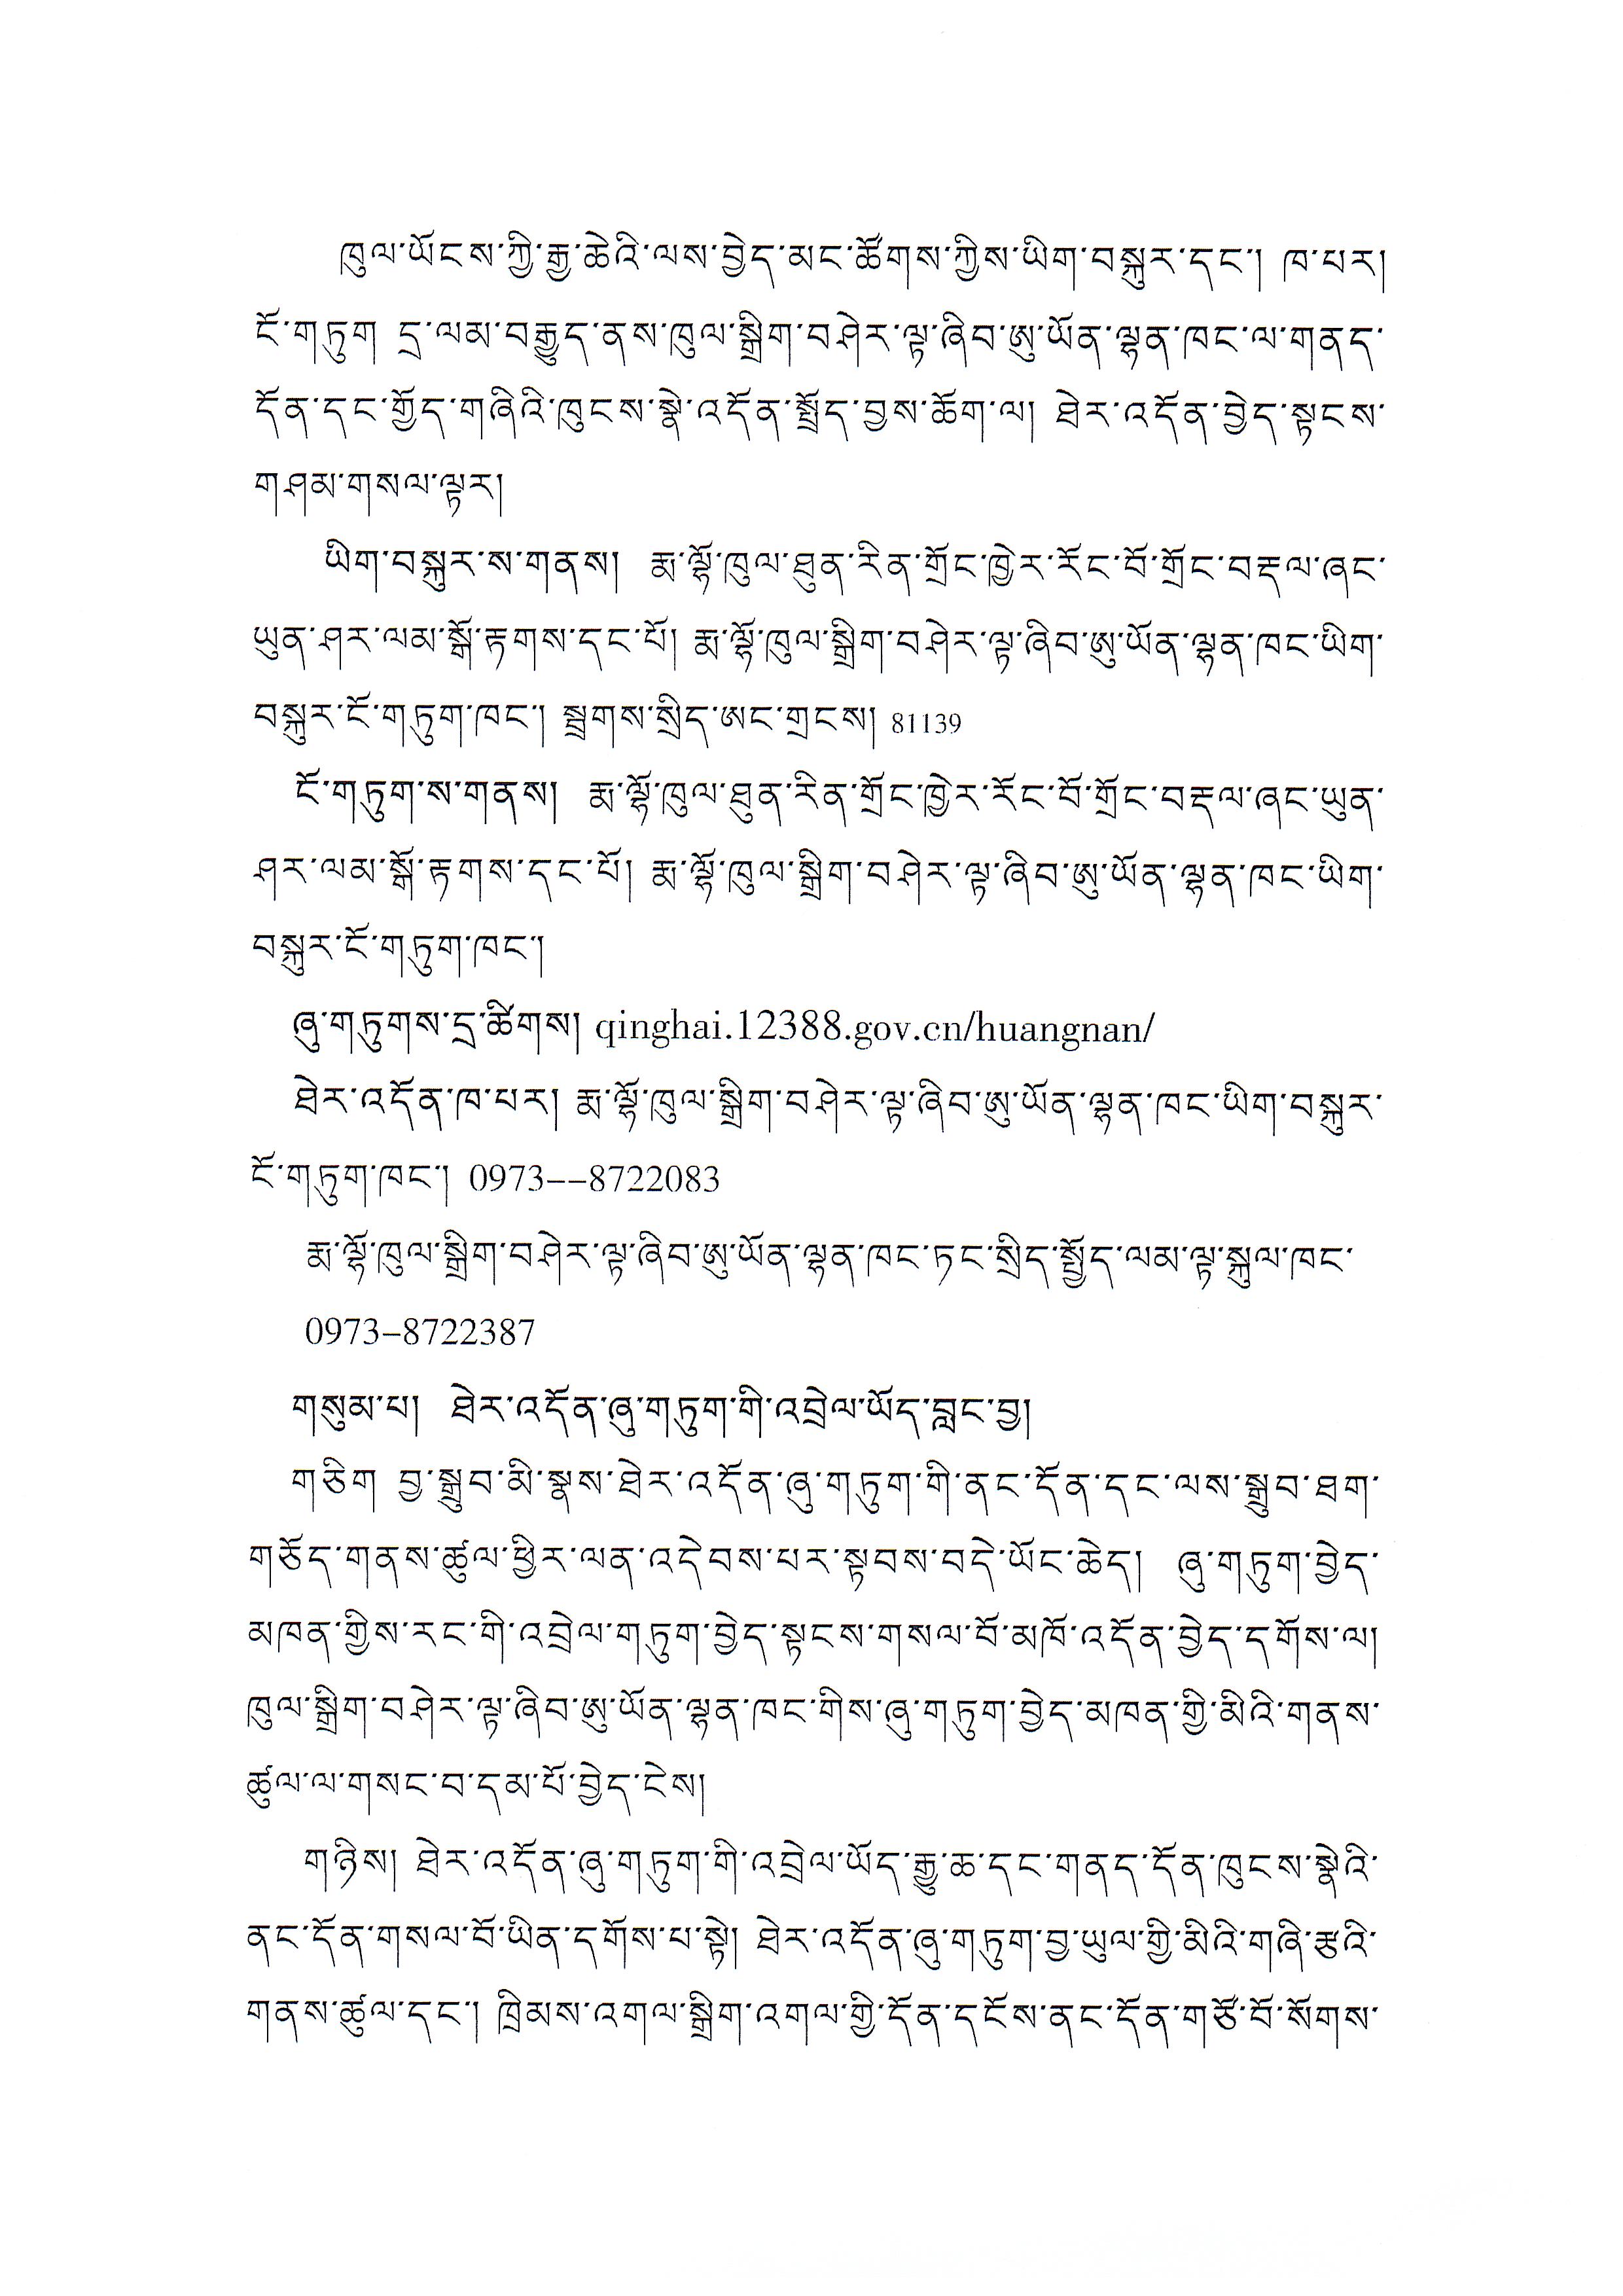 ཁུལ་ཡོངས་ཀྱི་རྒྱ་ཆེའི་ལས་བྱེད་མང་ཚོགས་ཀྱིས་ཡིག་བསྐུར་དང་། ཁ་པར།
ངོ་གཏུག དྲ་ལམ་བརྒྱུད་ནས་ཁུལ་སྒྲིག་བཤེར་ལྟ་ཞིབ་ཨུ་ཡོན་ལྷན་ཁང་ལ་གནད་
དོན་དང་གྱོད་གཞིའི་ཁུངས་སྣེ་འདོན་སྤྲོད་བྱས་ཆོག་ལ། ཐེར་འདོན་བྱེད་སྟངས་
གཤམ་གསལ་ལྟར།
ཡིག་བསྐུར་ས་གནས། རྨ་ལྷོ་ཁུལ་ཐུན་རིན་གྲོང་ཁྱེར་རོང་བོ་གྲོང་བརྡལ་ཞང་
ཡུན་ཤར་ལམ་སྒོ་རྟགས་དང་པོ། རྨ་ལྷོ་ཁུལ་སྒྲིག་བཤེར་ལྟ་ཞིབ་ཨུ་ཡོན་ལྷན་ཁང་ཡིག་
བསྐུར་ངོ་གཏུག་ཁང་། སྦྲགས་སྲིད་ཨང་གྲངས། 81139
ངོ་གཏུག་ས་གནས། རྨ་ལྷོ་ཁུལ་ཐུན་རིན་གྲོང་ཁྱེར་རོང་བོ་གྲོང་བརྡལ་ཞང་ཡུན་
ཤར་ལམ་སྒོ་རྟགས་དང་པོ། རྨ་ལྷོ་ཁུལ་སྒྲིག་བཤེར་ལྟ་ཞིབ་ཨུ་ཡོན་ལྷན་ཁང་ཡིག་
བསྐུར་ངོ་གཏུག་ཁང་།
ཞུ་གཏུགས་དྲ་ཚིགས། qinghai.12388.gov.cn/huangnan/
ཐེར་འདོན་ཁ་པར། རྨ་ལྷོ་ཁུལ་སྒྲིག་བཤེར་ལྟ་ཞིབ་ཨུ་ཡོན་ལྷན་ཁང་ཡིག་བསྐུར་
ངོ་གཏུག་ཁང་། 0973--8722083
རྨ་ལྷོ་ཁུལ་སྒྲིག་བཤེར་ལྟ་ཞིབ་ཨུ་ཡོན་ལྷན་ཁང་ཏང་སྲིད་སྤྱོད་ལམ་ལྟ་སྐུལ་ཁང་
0973-8722387
གསུམ་པ། ཐེར་འདོན་ཞུ་གཏུག་གི་འབྲེལ་ཡོད་བླང་བྱ།
གཅིག བྱ་སྒྲུབ་མི་སྣས་ཐེར་འདོན་ཞུ་གཏུག་གི་ནང་དོན་དང་ལས་སྒྲུབ་ཐག་
གཅོད་གནས་ཚུལ་ཕྱིར་ལན་འདེབས་པར་སྟབས་བདེ་ཡོང་ཆེད། ཞུ་གཏུག་བྱེད་
མཁན་གྱིས་རང་གི་འབྲེལ་གཏུག་བྱེད་སྟངས་གསལ་བོ་མཁོ་འདོན་བྱེད་དགོས་ལ།
ཁུལ་སྒྲིག་བཤེར་ལྟ་ཞིབ་ཨུ་ཡོན་ལྷན་ཁང་གིས་ཞུ་གཏུག་བྱེད་མཁན་གྱི་མིའི་གནས་
ཚུལ་ལ་གསང་བ་དམ་པོ་བྱེད་ངེས།
གཉིས། ཐེར་འདོན་ཞུ་གཏུག་གི་འབྲེལ་ཡོད་རྒྱུ་ཆ་དང་གནད་དོན་ཁུངས་སྣེའི་
ནང་དོན་གསལ་བོ་ཡིན་དགོས་པ་སྟེ། ཐེར་འདོན་ཞུ་གཏུག་བྱ་ཡུལ་གྱི་མིའི་གཞི་རྩའི་
གནས་ཚུལ་དང་། ཁྲིམས་འགལ་སྒྲིག་འགལ་གྱི་དོན་དངོས་ནང་དོན་གཙོ་བོ་སོགས་